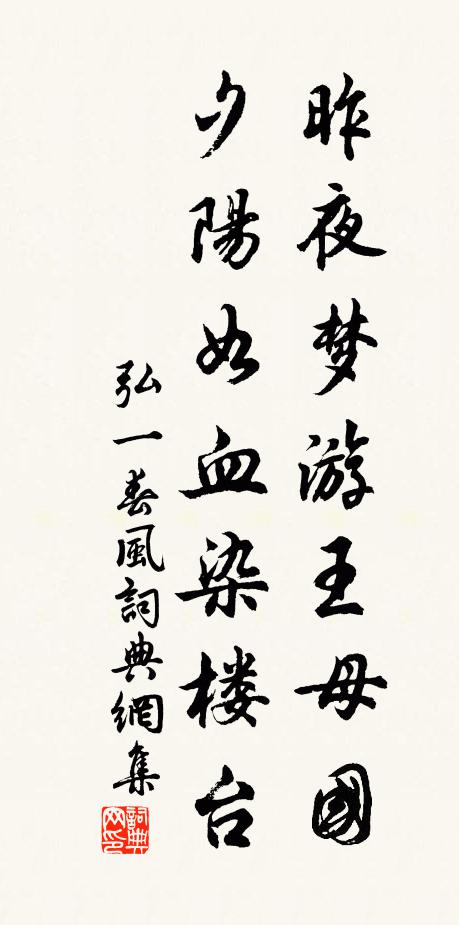 昨夜梦游王母國
夕陽如血染楼台
弘一春風詞典網集
詞典网印